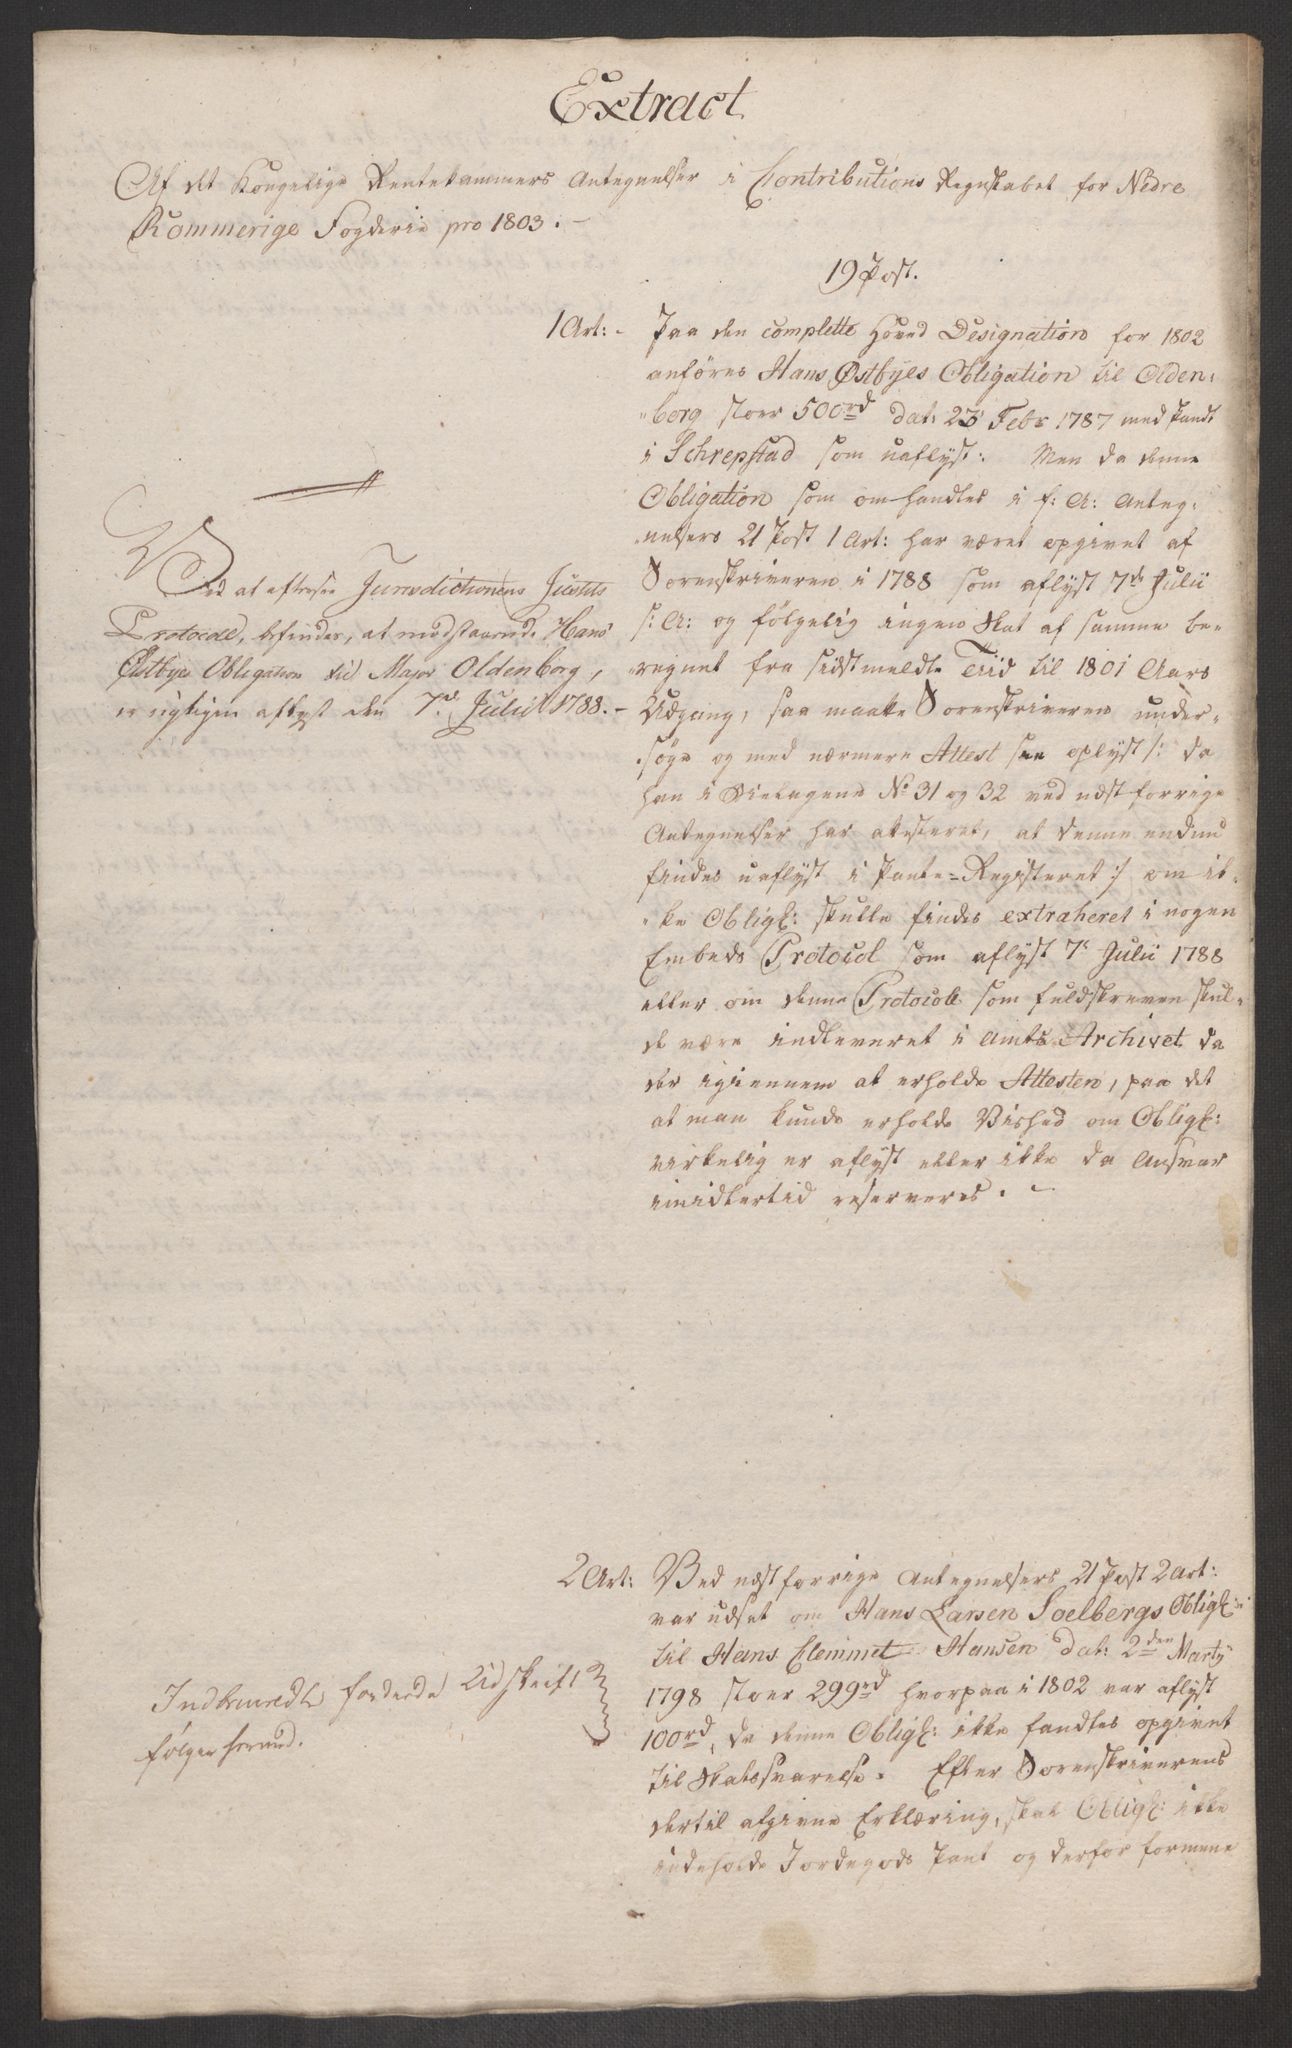 Extract
Af det Kongelige Rentekammers Antegnelser i Contributions Regnskabet for Nedre
Rommerige Fogderie pro 1803. -
19 Post.
1 Art: - Paa den complette Hoved Designation for 1802
anföres Hans Østbyes Obligation til Olden,
„borg stoer 500rd dat: 23 Febr 1787 med Pandt
i Schrepstad som uaflyst. Men da denne
Obligation som omhandles i f: A: Anteg,
„nelsers 21 Post 1 Art: har været opgivet af
Sorenskriveren i 1788 som aflyst 7de Julii
s: A: og fölgelig ingen Skat af samme be-
regnet fra sidstmeldte Tiid til 1801 Aars
Udgang, saa maatte Sorenskriveren under-
„söge og med nærmere Attest see oplyst /: da
han i Bielagene No 31 og 32 ved næst forrige
Antegnelser har attesteret, at denne endnu
findes uaflyst i Pante=Registeret :/ om ik-
„ke Obligt: skulle findes extraheret i nogen
Embeds Protocol som aflyst 7e Julii 1788
eller om denne Protocoll som fuldskreven skul-
de være indleveret i Amts-Archivet da
der igiennem at erholde Attesten, paa det
at man kunde erholde Vished om Obligt:
virkelig er aflyst eller ikke da Ansvar
imidlertid reserveres. -
Ved at eftersee Jurisdictionens Justits
Protocoll, befindes, at modstaaende Hans
Østbyes Obligation til Major Oldenborg,
er rigtigen aflyst den 7de Julii 1788. -
2 Art: Ved næst forrige Antegnelsers 21 Post 2 Art:
var udsat om Hans Larsen Soelbergs Obligt:
til Hans Clemmet Hansen dat: 2den Marty
1798 stoer 299rd hvorpaa i 1802 var aflyst
100rd, da denne Obligt: ikke fandtes opgivet
til Skatssvarelse. Efter Sorenskriverens
dertil afgivne Erklæring, skal Obligt: ikke
indeholde Jordegods Pant og derfor formene
Indbemeldte forderede Udskrift
fölger herved.